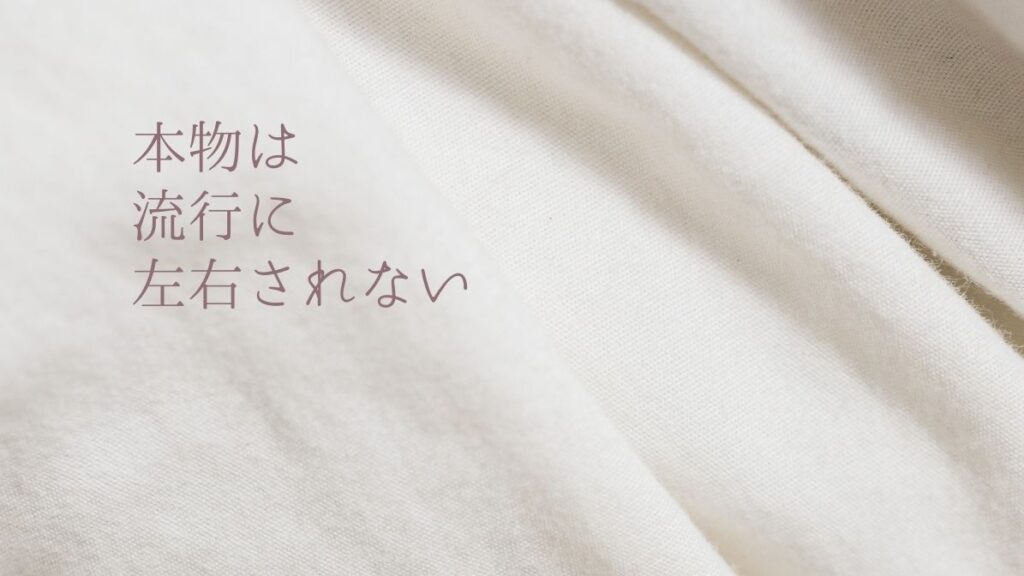 本物は
流行に
左右されない